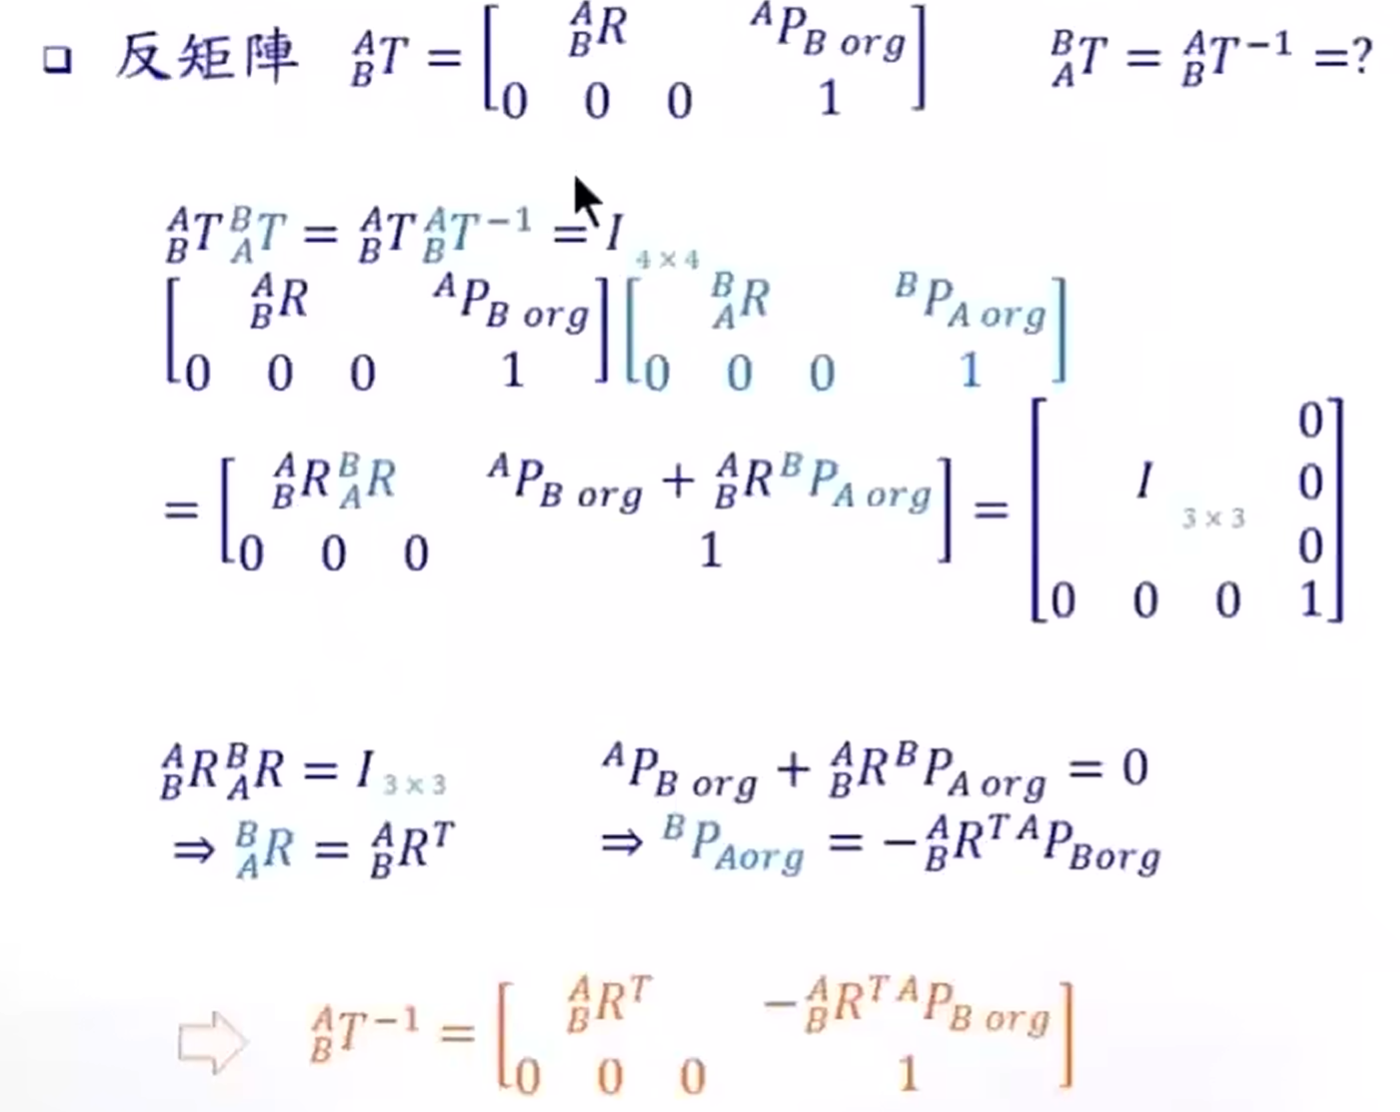 ❑ 反矩陣 $^A_BT = \begin{bmatrix} ^A_BR & ^AP_{B\ org} \\ 0\ \ 0\ \ 0 & 1 \end{bmatrix}$ $^B_AT = {}^A_BT^{-1} =?$
$^A_BT\,^B_AT = {}^A_BT\,^A_BT^{-1} = I_{4\times4}$
$\begin{bmatrix} ^A_BR & ^AP_{B\ org} \\ 0\ \ 0\ \ 0 & 1 \end{bmatrix}\begin{bmatrix} ^B_AR & ^BP_{A\ org} \\ 0\ \ 0\ \ 0 & 1 \end{bmatrix}$
$= \begin{bmatrix} ^A_BR\,^B_AR & ^AP_{B\ org} + {}^A_BR\,^BP_{A\ org} \\ 0\ \ 0\ \ 0 & 1 \end{bmatrix} = \begin{bmatrix} & 0 \\ I_{3\times3} & 0 \\ & 0 \\ 0\ \ 0\ \ 0 & 1 \end{bmatrix}$
$^A_BR\,^B_AR = I_{3\times3}$ $^AP_{B\ org} + {}^A_BR\,^BP_{A\ org} = 0$
$\Rightarrow {}^B_AR = {}^A_BR^T$ $\Rightarrow {}^BP_{Aorg} = -{}^A_BR^T\,^AP_{Borg}$
⇨ $^A_BT^{-1} = \begin{bmatrix} ^A_BR^T & -{}^A_BR^T\,^AP_{B\ org} \\ 0\ \ 0\ \ 0 & 1 \end{bmatrix}$